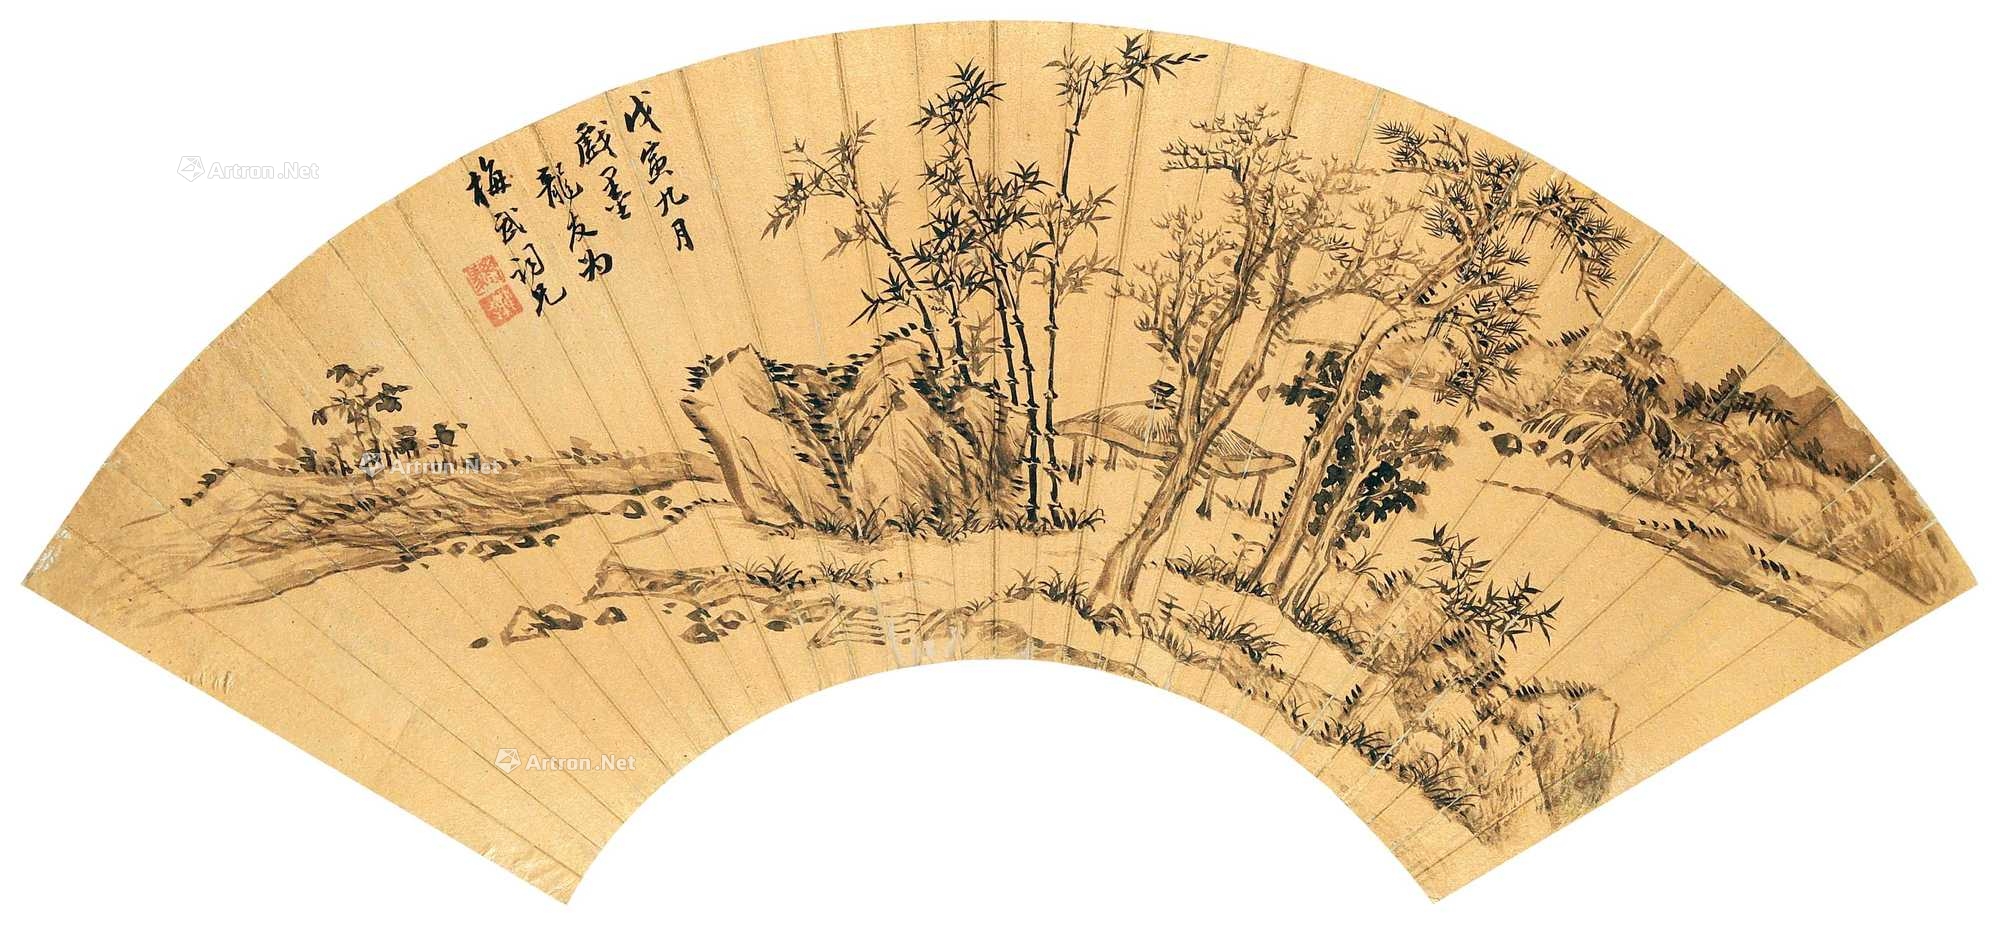 戊寅九月
戲墨
龍友為
梅武詞兄
Artron.Net
Artron.Net
Artron.Net